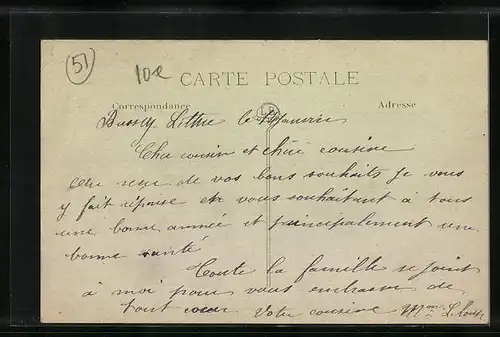 51
10e
CARTE POSTALE
Correspondance
LR
Adresse
Lettrée le Janvier
Cher cousin et chère cousine
reçu de vos bons souhaits je vous
y fait réponse en vous souhaitant à tous
une bonne année et principalement une
bonne santé
Toute la famille se joint
à moi pour vous embrasser de
tout cœur Votre cousine Mme